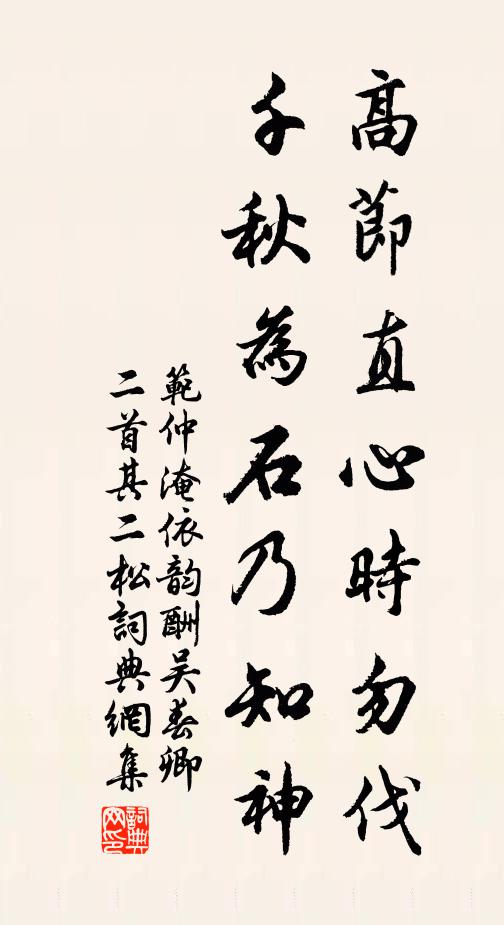 高節直心時勿伐
千秋為石乃知神
範仲淹依韵酬吴春卿
二首其二松詞典網集
詞典
网印